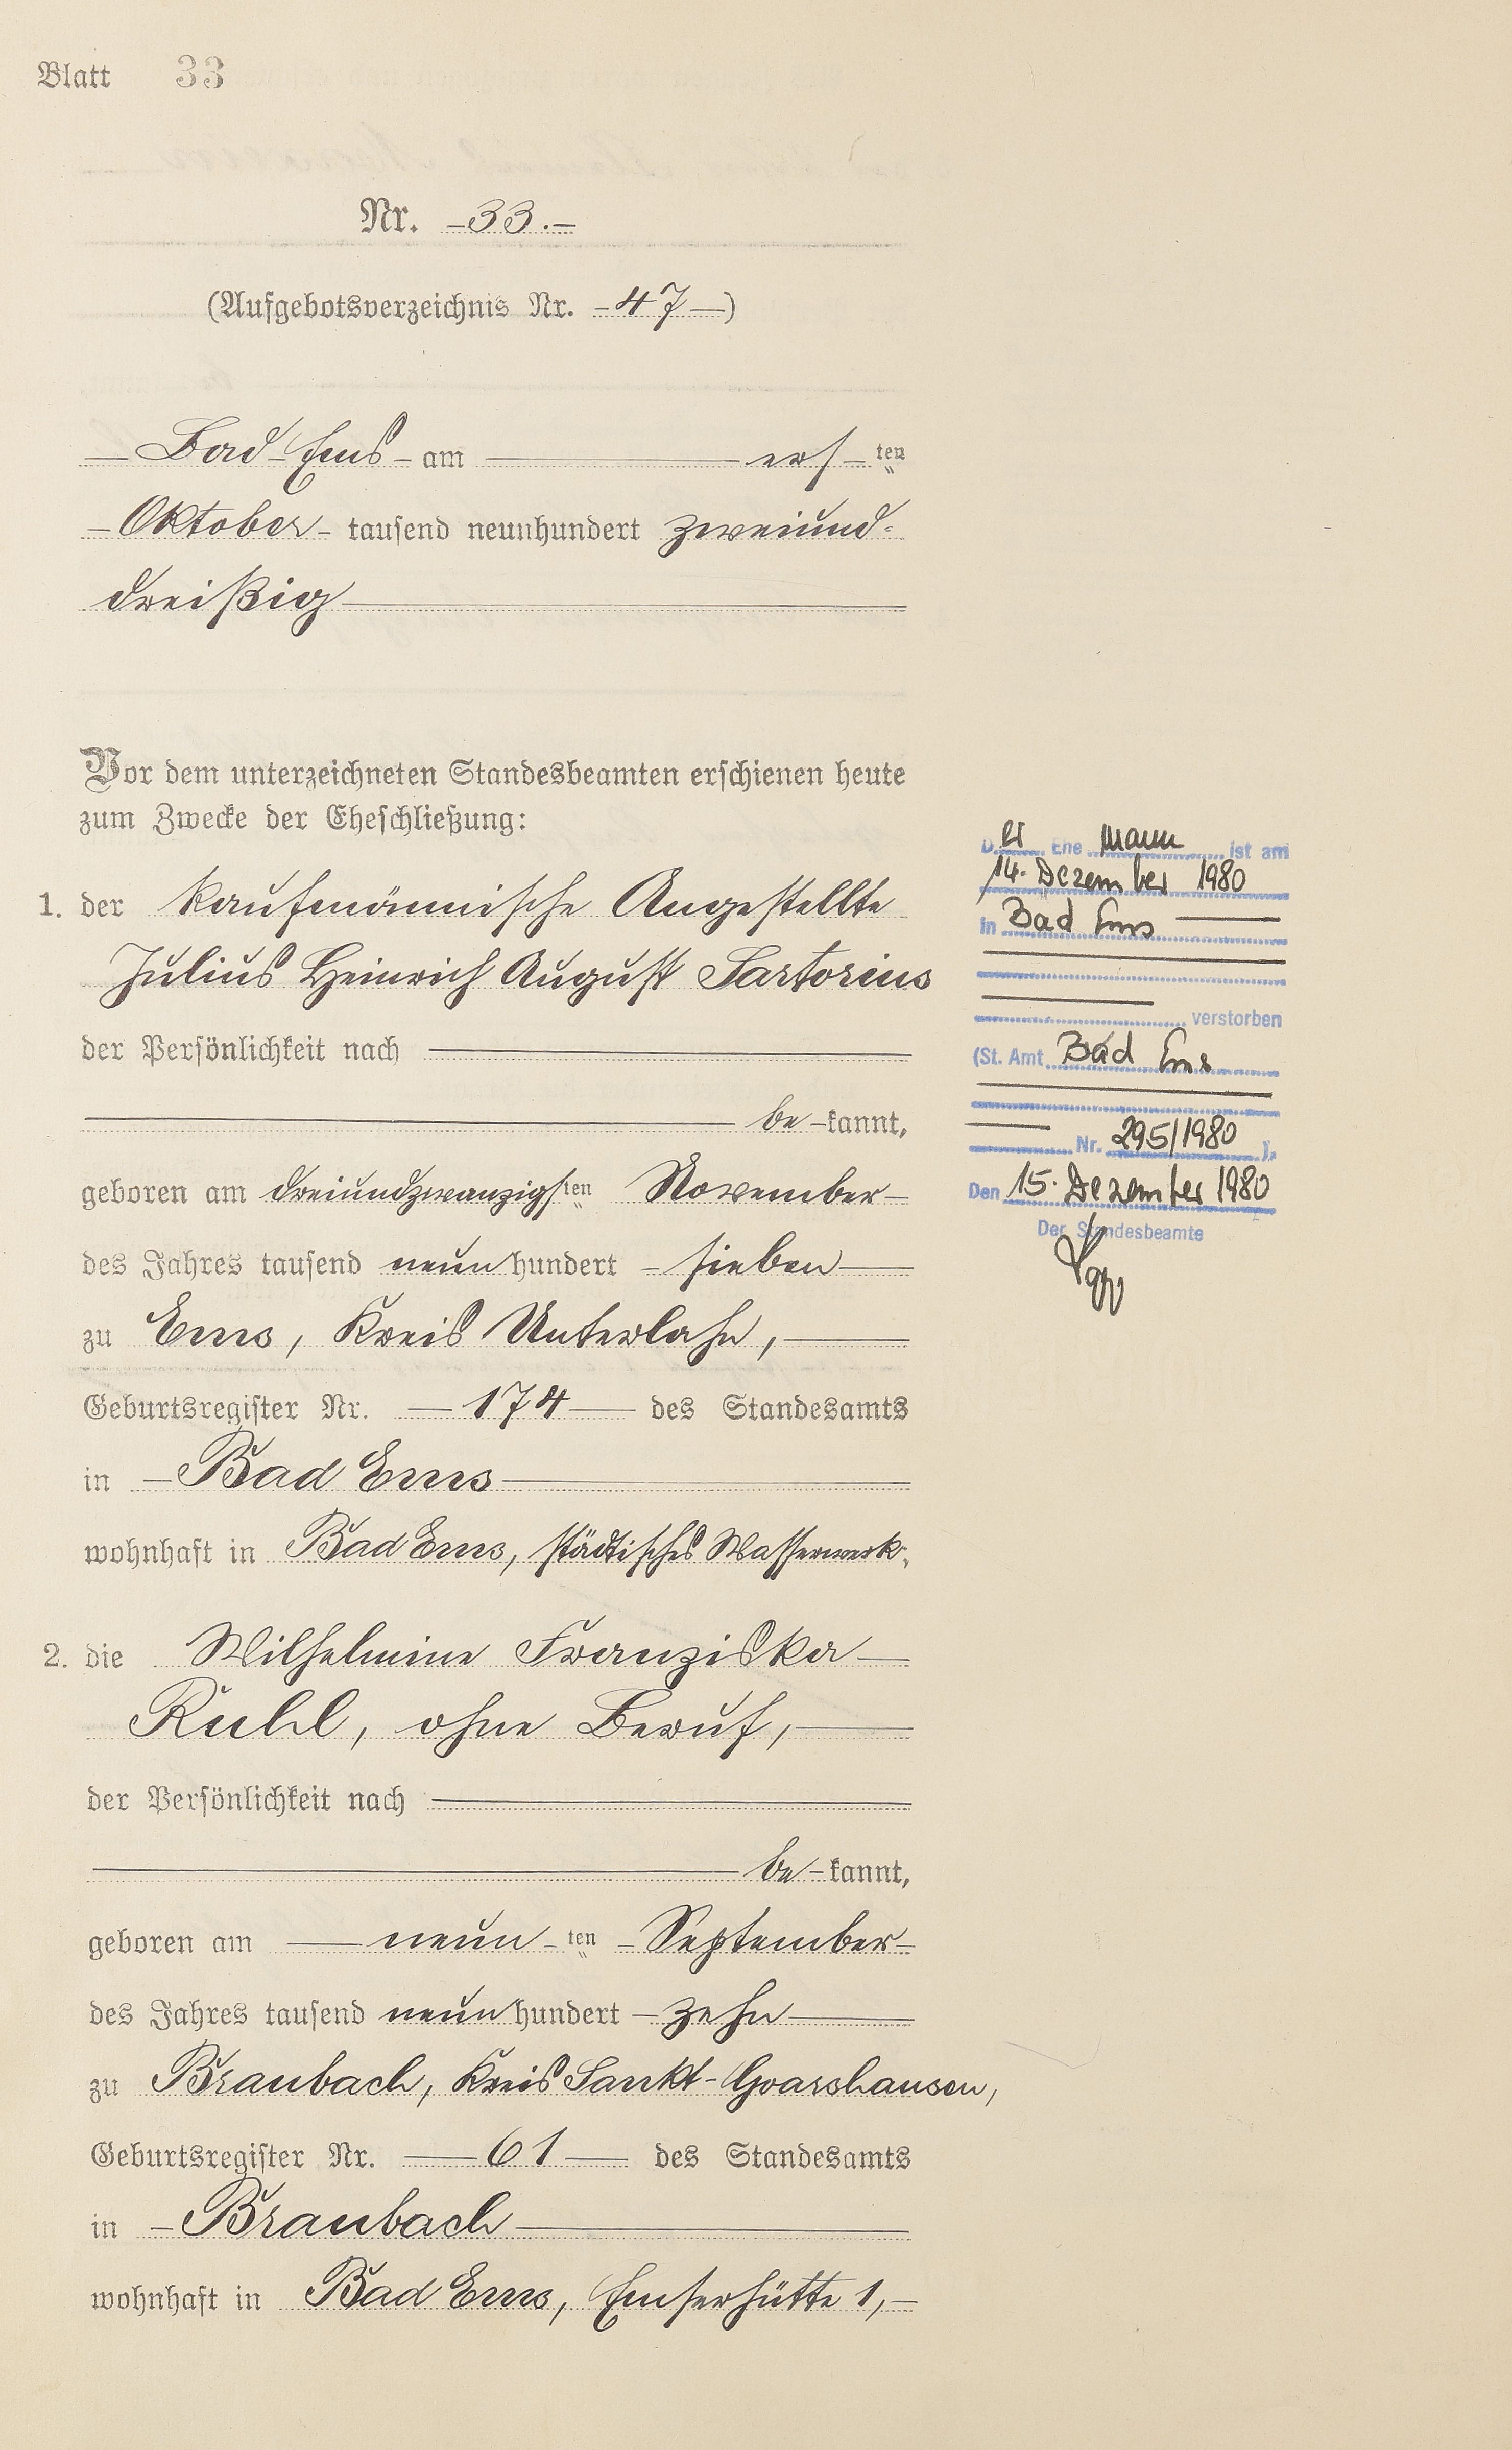 Blatt 33
Nr. -33.-
(Aufgebotsverzeichnis Nr. -47-)
Bad Ems - am ersten
Oktober - tausend neunhundert zweiund-
dreißig
Vor dem unterzeichneten Standesbeamten erschienen heute
zum Zwecke der Eheschließung:
1. der kaufmännische Angestellte
Julius Heinrich August Sartorius
der Persönlichkeit nach
be-kannt,
geboren am dreiundzwanzigsten November
des Jahres tausend neunhundert sieben
zu Ems, Kreis Unterlahn,
Geburtsregister Nr. 174 des Standesamts
in Bad Ems
wohnhaft in Bad Ems, städtisches Wasserwerk,
2. die Wilhelmine Franziska
Ruhl, ohne Beruf,
der Persönlichkeit nach
be-kannt,
geboren am neunten September
des Jahres tausend neunhundert zehn
zu Braubach, Kreis Sankt-Goarshausen,
Geburtsregister Nr. 61 des Standesamts
in Braubach
wohnhaft in Bad Ems, Emserhütte 1,
Der Ehemann ist am
14. Dezember 1980
in Bad Ems
verstorben
(St. Amt Bad Ems
Nr. 295/1980 ).
Den 15. Dezember 1980
Der Standesbeamte